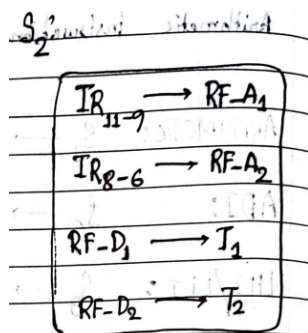 S₂
IR₁₁₋₉ → RF-A₁
IR₈₋₆ → RF-A₂
RF-D₁ → T₁
RF-D₂ → T₂